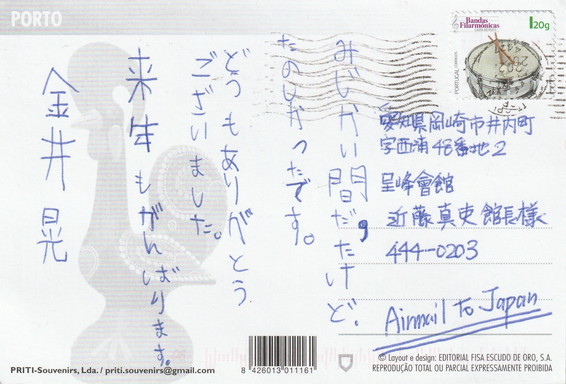 PORTO
Bandas Filarmónicas
I20g
PORTUGAL CORREIOS
みじかい間だったけど
たのしかったです。
どうもありがとう
ございました。
来年もがんばります。
金井晃
愛知県岡崎市井内町
字西浦48番地2
呈峰會館
近藤真吏館長様
444-0203
Airmail To Japan
PRITI-Souvenirs, Lda. / priti.souvenirs@gmail.com
8 426013 011161
© Layout e design: EDITORIAL FISA ESCUDO DE ORO, S.A.
REPRODUÇÃO TOTAL OU PARCIAL EXPRESSAMENTE PROIBIDA